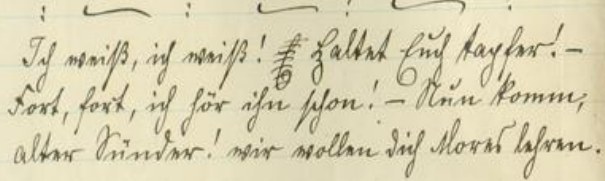 Ich weiß, ich weiß! Haltet Euch tapfer! –
Fort, fort, ich hör ihn schon! – Nun komm,
alter Sünder! wir wollen dich Mores lehren.